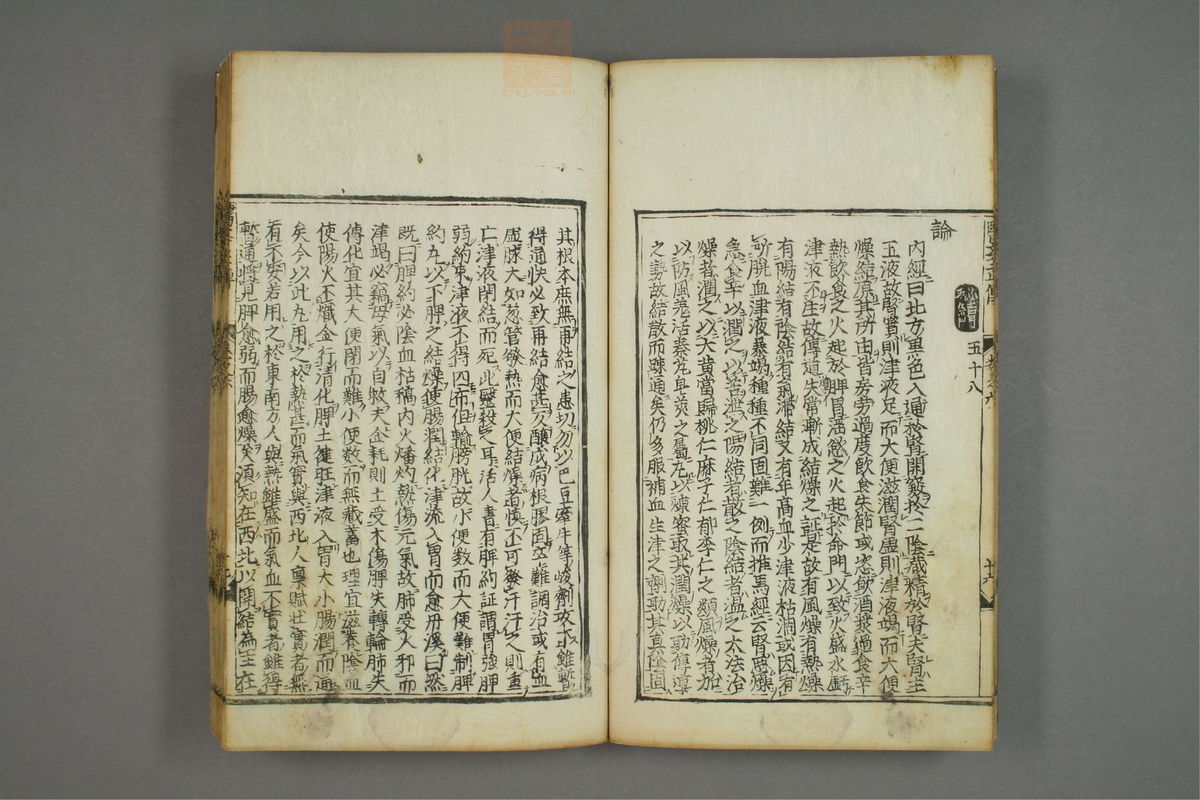 秘結門 五十八
論
內經曰北方黑色入通於腎開竅於二陰藏精於腎夫腎主
五液故腎實則津液足而大便滋潤腎虛則津液竭而大便
燥結原其所由皆房勞過度飲食失節或恣飲酒漿過食辛
熱飲食之火起於脾胃淫慾之火起於命門以致火盛水虧
津液不生故傳道失常漸成結燥之証是故有風燥有熱燥
有陽結有陰結有氣滯結又有年高血少津液枯涸或因有
所脫血津液暴竭種種不同固難一例而推焉經云腎惡燥
急食辛以潤之以苦泄之陽結者散之陰結者溫之大法治
燥者潤之以大黃當歸桃仁麻子仁郁李仁之類風燥者加
以防風羌活秦艽皂莢之屬丸以煉蜜取其潤燥以助傳導
之勢故結散而疎通矣仍多服補血生津之劑助其真陰固
其根本庶無再結之患切勿以巴豆牽牛等峻劑攻下雖暫
得通快必致再結愈甚反釀成病根膠固卒難調治或有血
虛脉大如葱管發熱而大便結燥者慎不可發汗汗之則重
亡津液閉結而死此醫殺之耳活人書有脾約証謂胃強脾
弱約束津液不得四布但輸膀胱故小便數而大便難制脾
約丸以下脾之結燥使腸潤結化津流入胃而愈丹溪曰然
既曰脾約必陰血枯槁內火燔灼熱傷元氣故肺受火邪而
津竭必竊母氣以自救夫金耗則土受木傷脾失轉輸肺失
傳化宜其大便閉而難小便數而無藏蓄也理宜滋養陰血
使陽火不熾金行清化脾土健旺津液入胃大小腸潤而通
矣今以此丸用之於熱甚而氣實與西北人稟賦壯實者無
有不安若用之於東南方人與熱雖盛而氣血不實者雖得
暫通將見脾愈弱而腸愈燥矣須知在西北以開結為主在